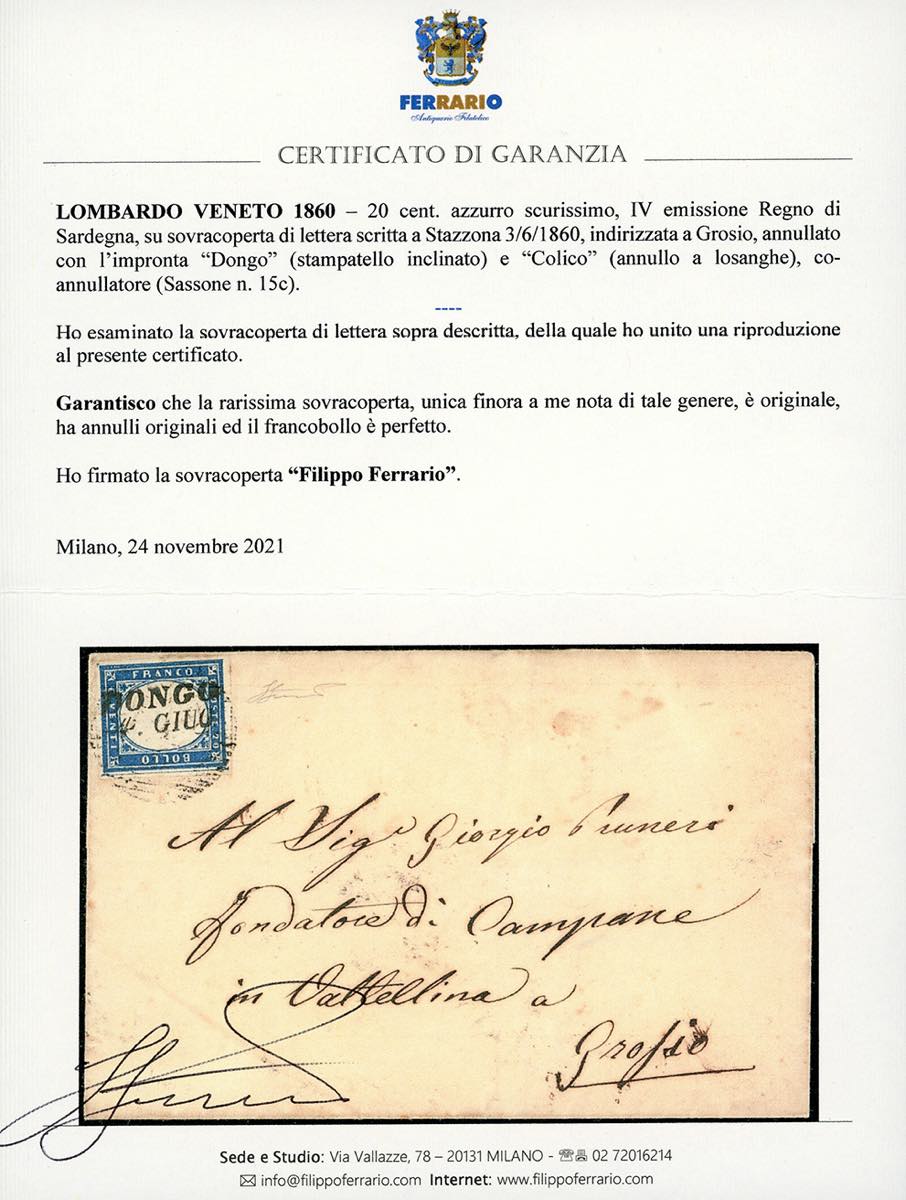 FERRARIO
Antiquario Filatelico
CERTIFICATO DI GARANZIA
LOMBARDO VENETO 1860 – 20 cent. azzurro scurissimo, IV emissione Regno di
Sardegna, su sovracoperta di lettera scritta a Stazzona 3/6/1860, indirizzata a Grosio, annullato
con l’impronta “Dongo” (stampatello inclinato) e “Colico” (annullo a losanghe), co-
annullatore (Sassone n. 15c).
----
Ho esaminato la sovracoperta di lettera sopra descritta, della quale ho unito una riproduzione
al presente certificato.
Garantisco che la rarissima sovracoperta, unica finora a me nota di tale genere, è originale,
ha annulli originali ed il francobollo è perfetto.
Ho firmato la sovracoperta “Filippo Ferrario”.
Milano, 24 novembre 2021
FRANCO
DONGO
4. GIUG
BOLLO
Al Sigr Giorgio Pruneri
fondatore di Campane
in Valtellina a
Grosio
Sede e Studio: Via Vallazze, 78 – 20131 MILANO - 02 72016214
info@filippoferrario.com Internet: www.filippoferrario.com